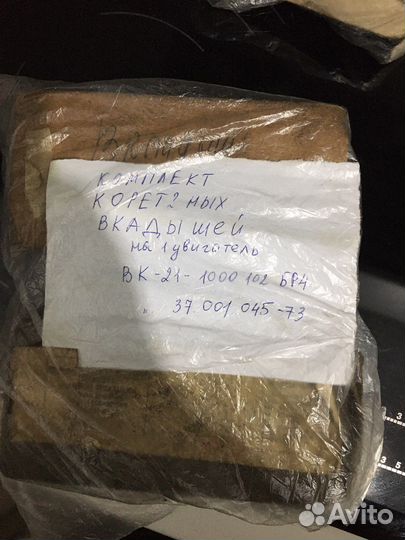 Вкладыши
КОМПЛЕКТ
КОРЕТ2НЫХ
ВКАДЫШЕЙ
на 1 увигатель
ВК-21-1000102 БР4
„ 37.001.045-73
3
3 5
Avito